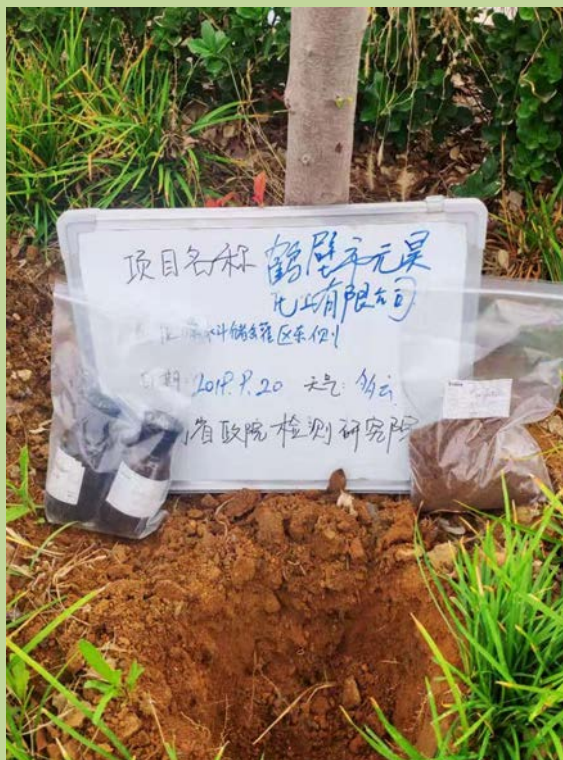 项目名称 鹤壁市元昊
化工有限公司
料储罐区东侧
期: 2019.9.20 天气: 多云
省政院检测研究院